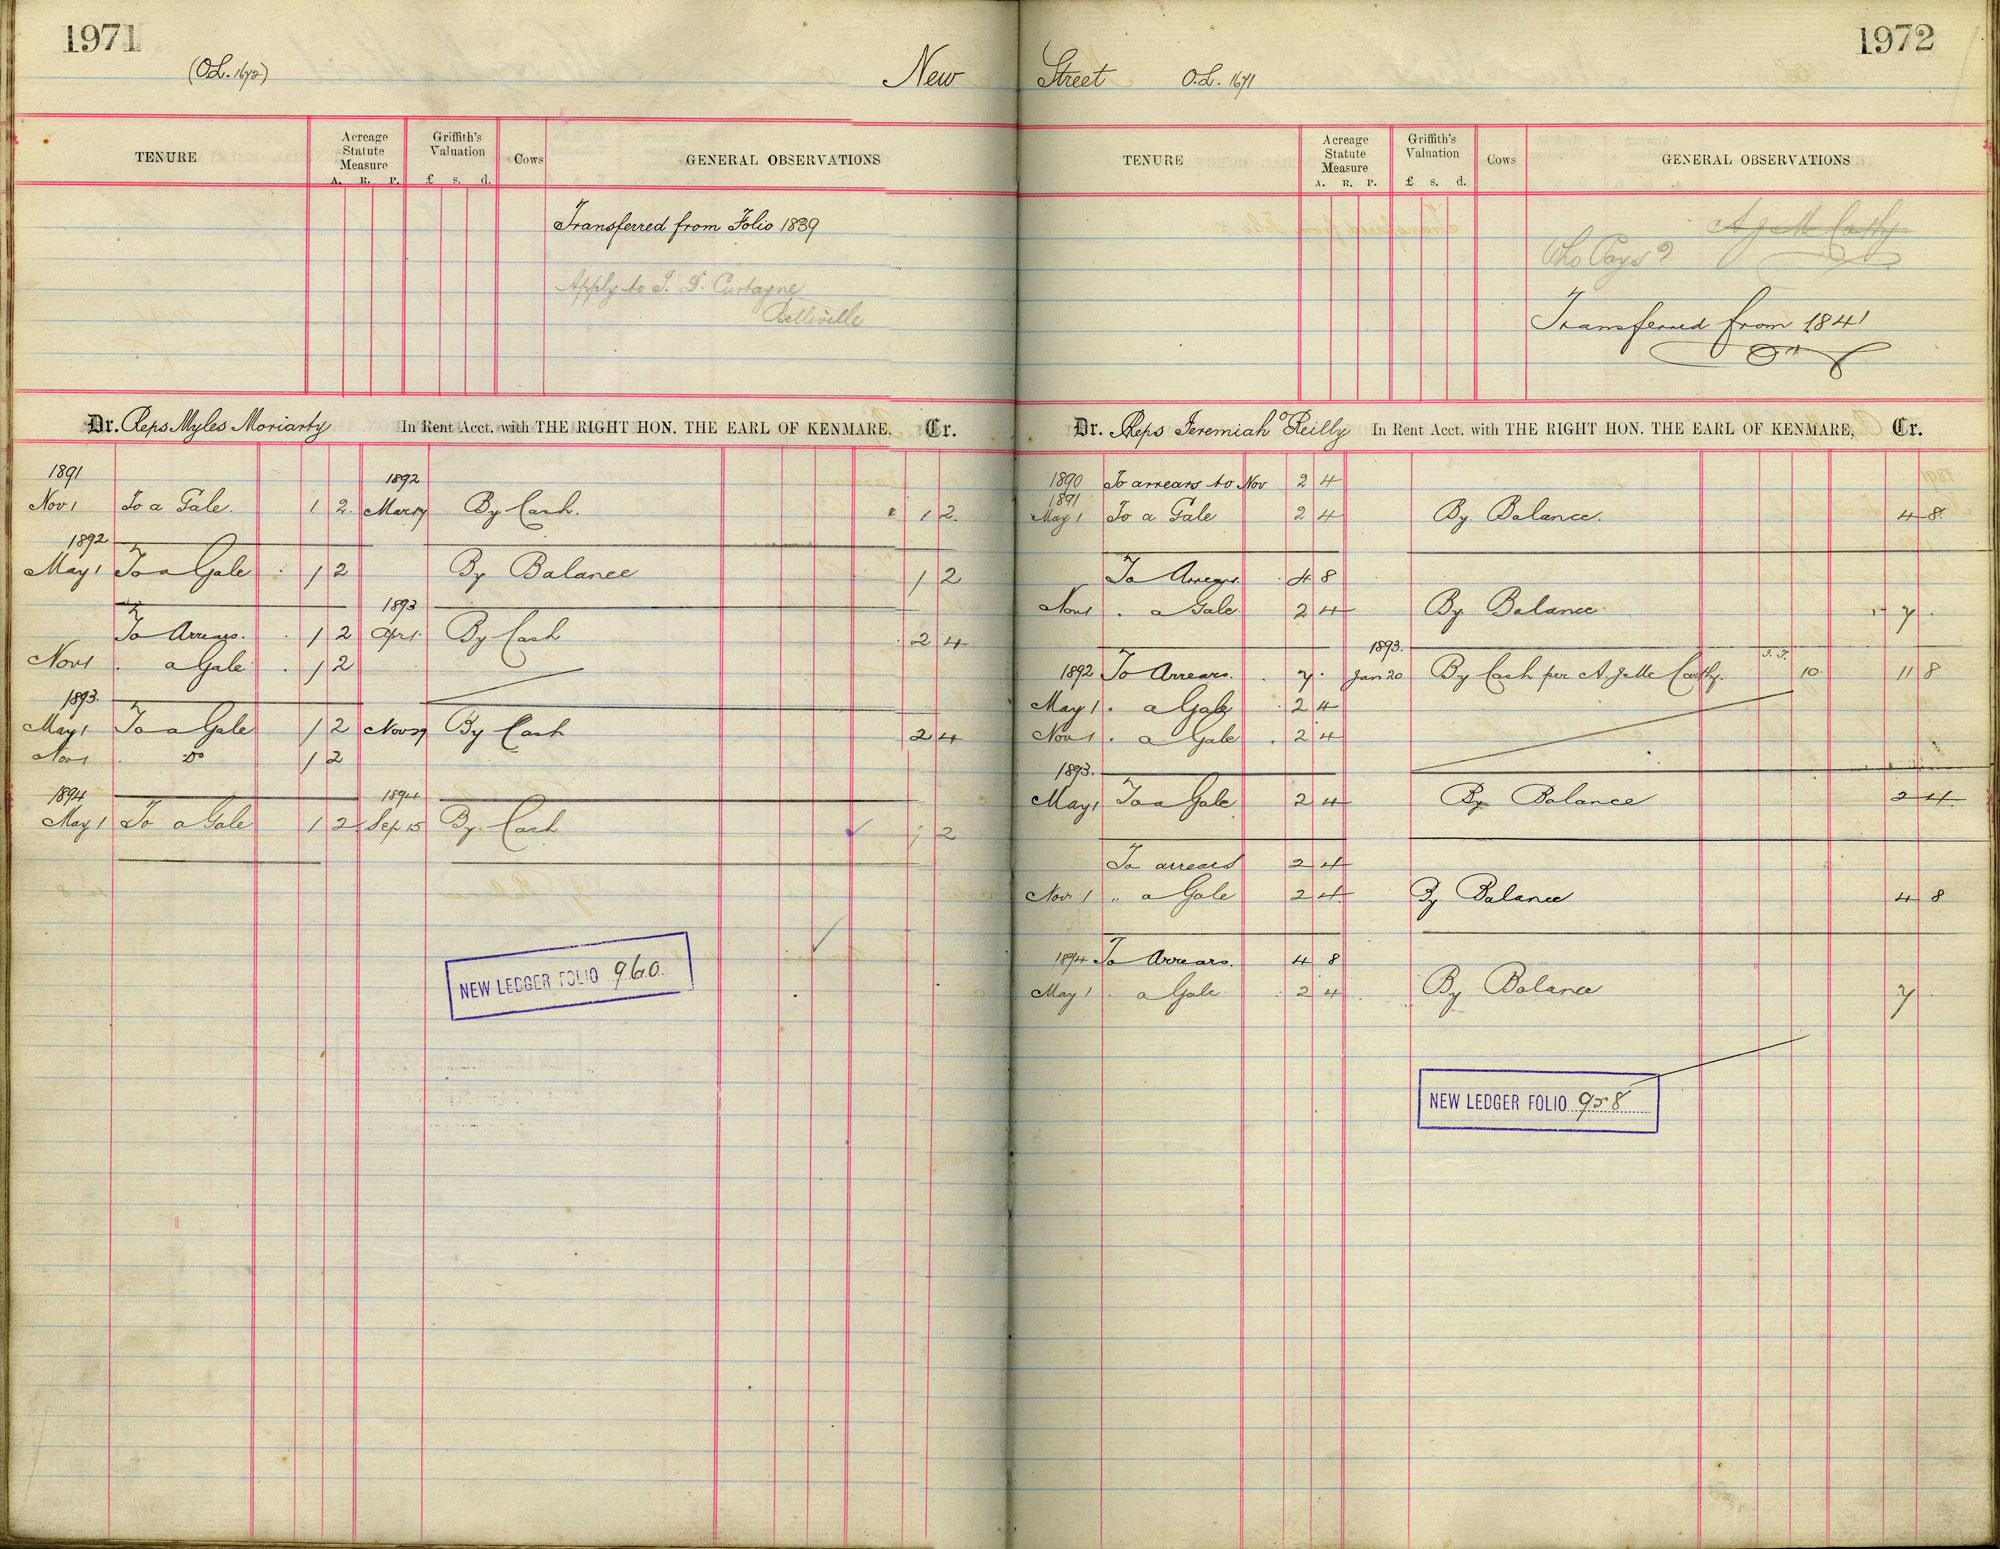 1971
(O.L. 1672)
New
TENURE
Acreage Statute Measure
A. R. P.
Griffith's Valuation
£ s. d.
Cows
GENERAL OBSERVATIONS
Transferred from Folio 1839
Apply to
Dr. Reps Myles Moriarty In Rent Acct. with THE RIGHT HON. THE EARL OF KENMARE, Cr.
1891 1892
Nov 1 To a Gale. 1 2 Mar 17 By Cash. 1 2
1892
May 1 To a Gale 1 2 By Balance 1 2
1893
To Arrears. 1 2 Apr 1 By Cash 2 4
Nov 1 . a Gale 1 2
1893
May 1 To a Gale 1 2 Nov 29 By Cash 2 4
Nov 1 . Do 1 2
1894 1894
May 1 To a Gale 1 2 Sep 15 By Cash 1 2
NEW LEDGER FOLIO 960
1972
Street O.L. 1671
TENURE
Acreage Statute Measure
A. R. P.
Griffith's Valuation
£ s. d.
Cows
GENERAL OBSERVATIONS
A J McCarthy
Who Pays?
Transferred from 1841
Dr. Reps Jeremiah O'Reilly In Rent Acct. with THE RIGHT HON. THE EARL OF KENMARE, Cr.
1890 To arrears to Nov 2 4
1891
May 1 To a Gale 2 4 By Balance. 4 8
To Arrears. 4 8
Nov 1 . a Gale 2 4 By Balance 7
1893.
1892 To Arrears. 7 Jan 20 By Cash per A. J McCarthy. 10 11 8
May 1 . a Gale 2 4
Nov 1 . a Gale 2 4
1893.
May 1 To a Gale 2 4 By Balance 2 4
To arrears 2 4
Nov 1 " a Gale 2 4 By Balance 4 8
1894 To Arrears. 4 8
May 1 . a Gale 2 4 By Balance 7
NEW LEDGER FOLIO 958